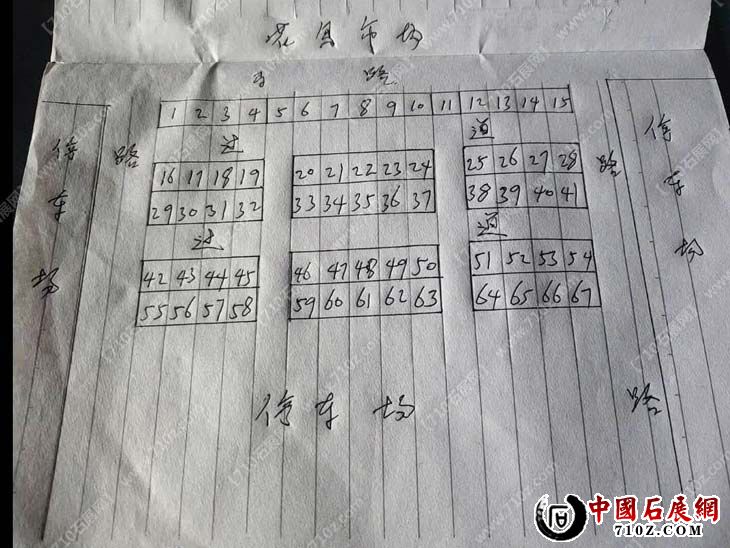 花鸟市场
路
1 2 3 4 5 6 7 8 9 10 11 12 13 14 15
过 道
16 17 18 19 20 21 22 23 24 25 26 27 28
29 30 31 32 33 34 35 36 37 38 39 40 41
过 道
42 43 44 45 46 47 48 49 50 51 52 53 54
55 56 57 58 59 60 61 62 63 64 65 66 67
停车场
路
路
停车场
停车场
路
中國石展網
710z.com